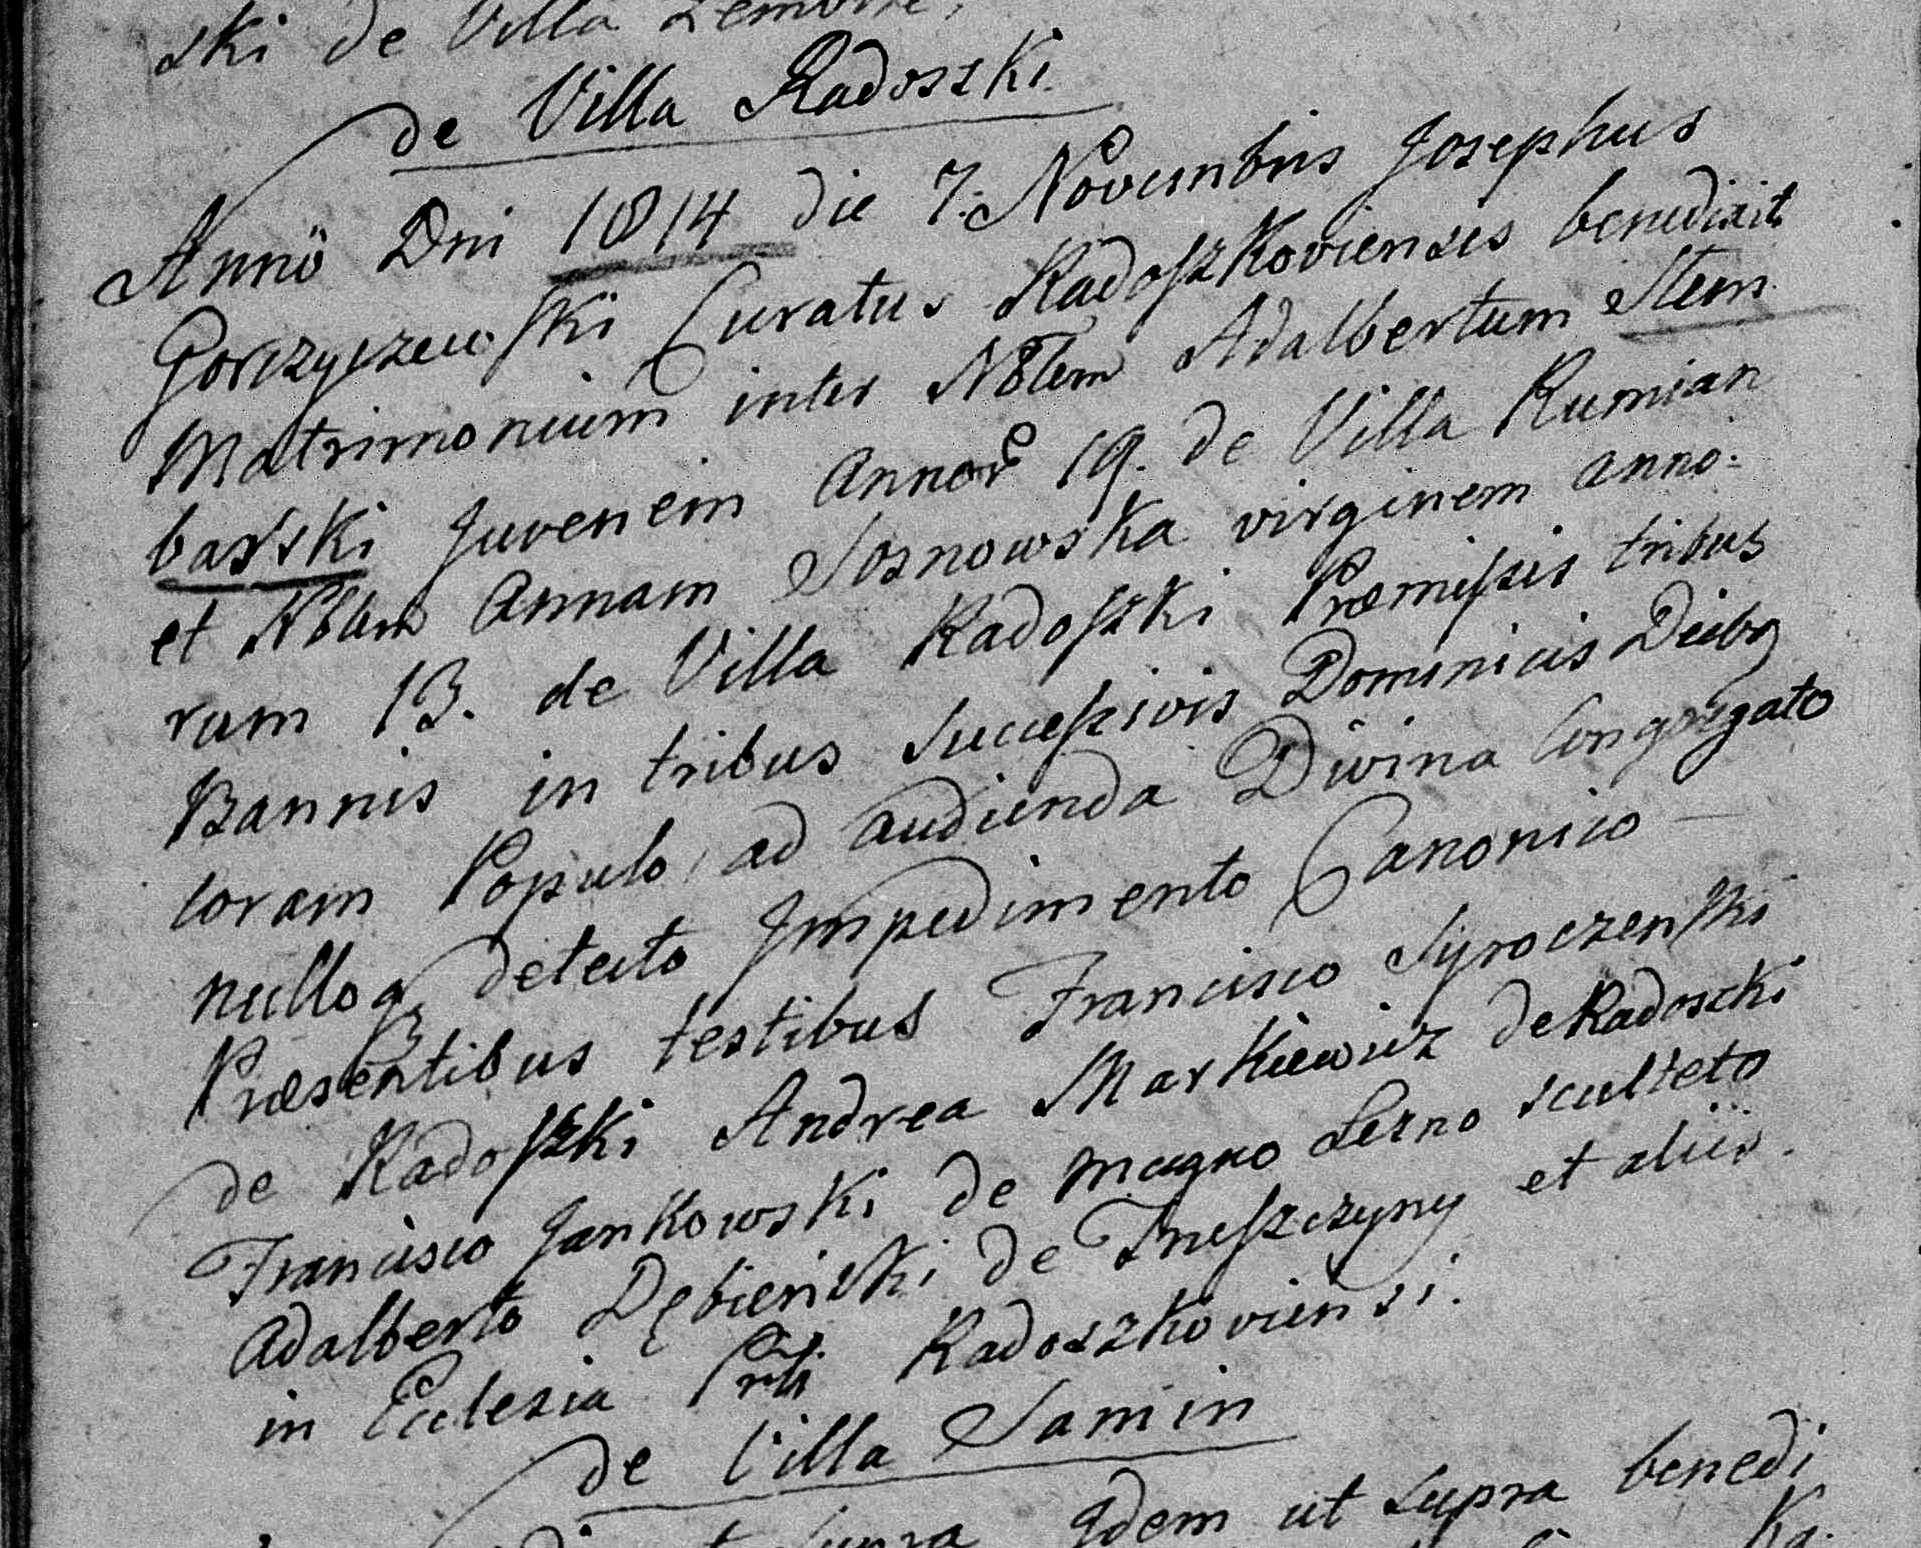 ski de Villa
de Villa Radoszki
Anno Dni 1814 die 7. Novembris Josephus
Gorczyczewski Curatus Radoszkoviensis benedixit
Matrimonium inter Nôlem Adalbertum Stem
barski Juvenem annor 19. de Villa Rumian
et Nblem Annam Sosnowska virginem anno-
rum 13. de Villa Radoszki Præmissis tribus
Bannis in tribus successivis Dominicis Diebq
coram Populo ad audienda Divina Congregato
nulloq detecto Impedimento Canonico —
Præsentibus testibus Francisco Syroczenski
de Radoszki Andrea Markiewicz de Radoszki
Francisco Jankowski de magno Lezno sculteto
Adalberto Dębieński de Truszczyny et aliis.
in Eclesia Prli Radoszkoviensi.
de Villa Samin
supra Idem ut supra benedi